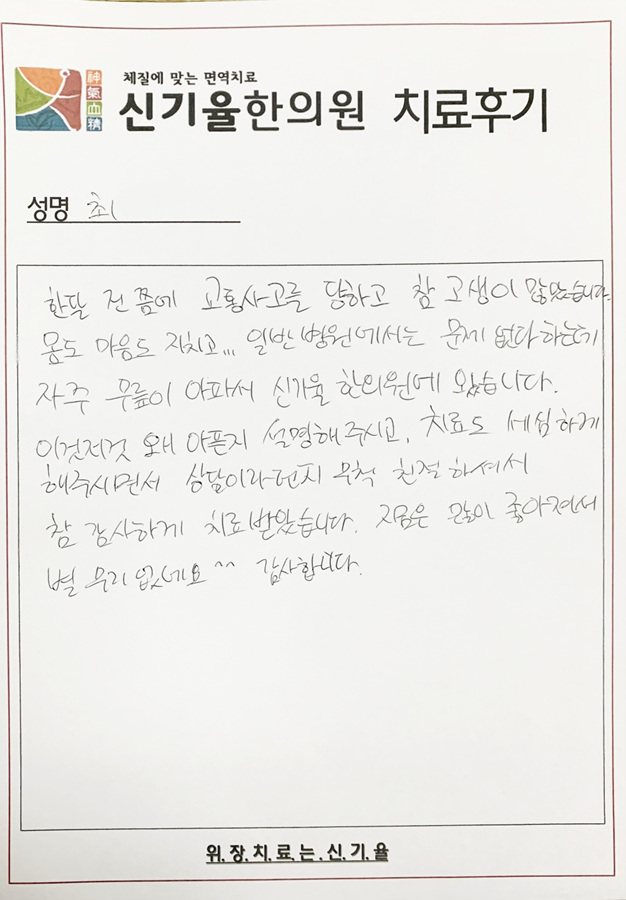 神氣血精
체질에 맞는 면역치료
신기율한의원 치료후기
성명 최
한달 전 쯤에 교통사고를 당하고 참 고생이 많았습니다.
몸도 마음도 지치고,,, 일반 병원에서는 문제 없다 하는데
자주 무릎이 아파서 신기율 한의원에 왔습니다.
이것저것 왜 아픈지 설명해주시고, 치료도 세심하게
해주시면서 상담이라던지 무척 친절하셔서
참 감사하게 치료받았습니다. 지금은 많이 좋아져서
별 무리 없네요^^ 감사합니다.
위.장.치.료.는.신.기.율